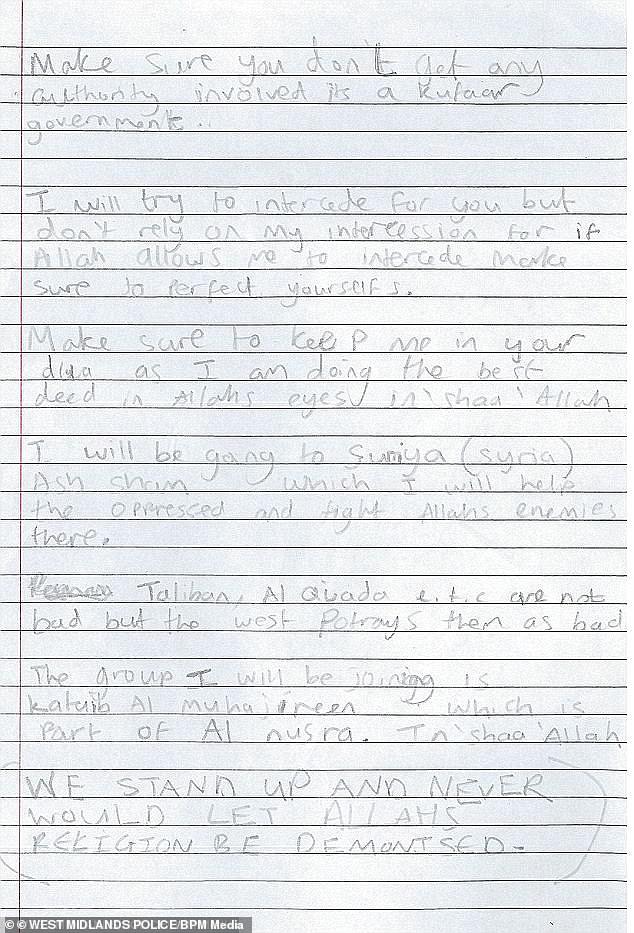 Make sure you don't get any
authority involved its a Kufaar
government..
I will try to intercede for you but
don't rely on my intercession for if
Allah allows me to intercede make
sure to perfect yourselfs.
Make sure to keep me in your
dua as I am doing the best
deed in Allahs eyes in'shaa'Allah
I will be going to Suriya (syria)
Ash sham which I will help
the oppressed and fight Allahs enemies
there.
Taliban, Al Quada e.t.c are not
bad but the west Potrays them as bad
The group I will be joining is
Kataib Al muhajireen which is
Part of Al nusra. In'shaa'Allah
WE STAND UP AND NEVER
WOULD LET ALLAHS
RELIGION BE DEMONTSED-
© © WEST MIDLANDS POLICE/BPM Media